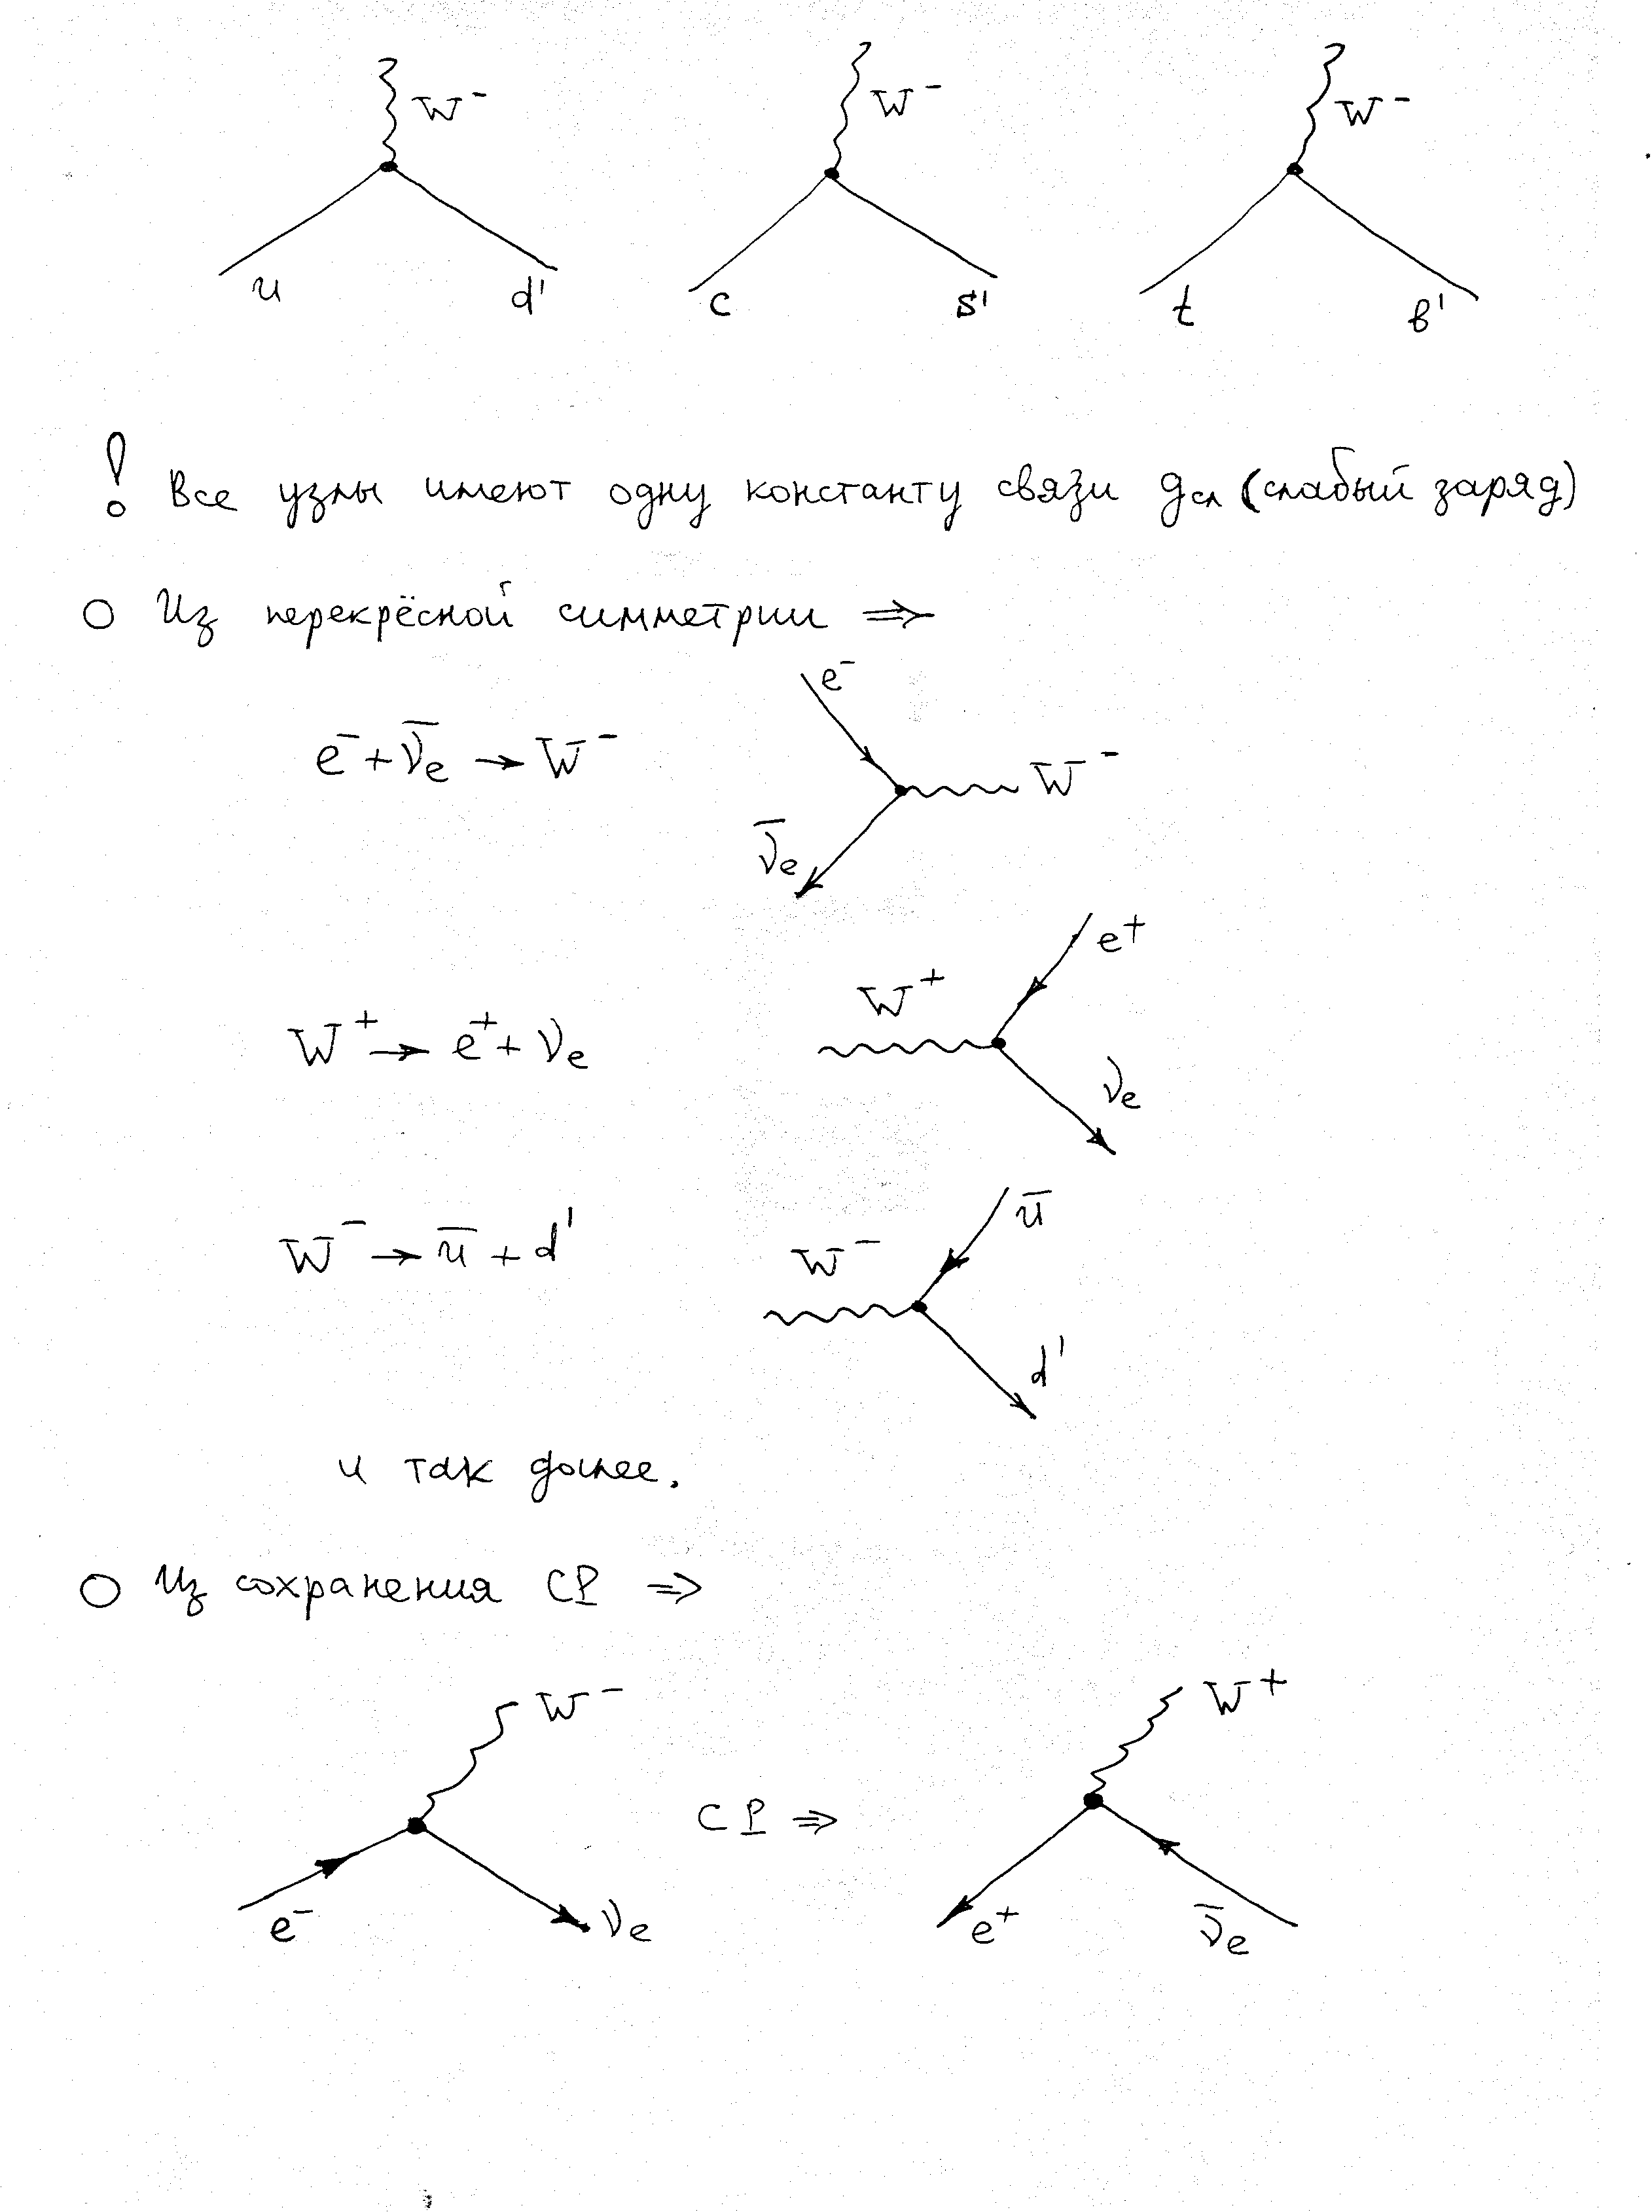 W⁻ W⁻ W⁻
u d' c s' t b'
! Все узлы имеют одну константу связи gсл (слабый заряд)
○ Из перекрёсной симметрии ⇒
e⁻
e⁻ + ν̄e → W⁻
W⁻
ν̄e
e⁺
W⁺
W⁺ → e⁺ + νe
νe
ū
W⁻ → ū + d'
W⁻
d'
и так далее.
○ Из сохранения CP ⇒
W⁻ W⁺
CP ⇒
e⁻ νe e⁺ ν̄e